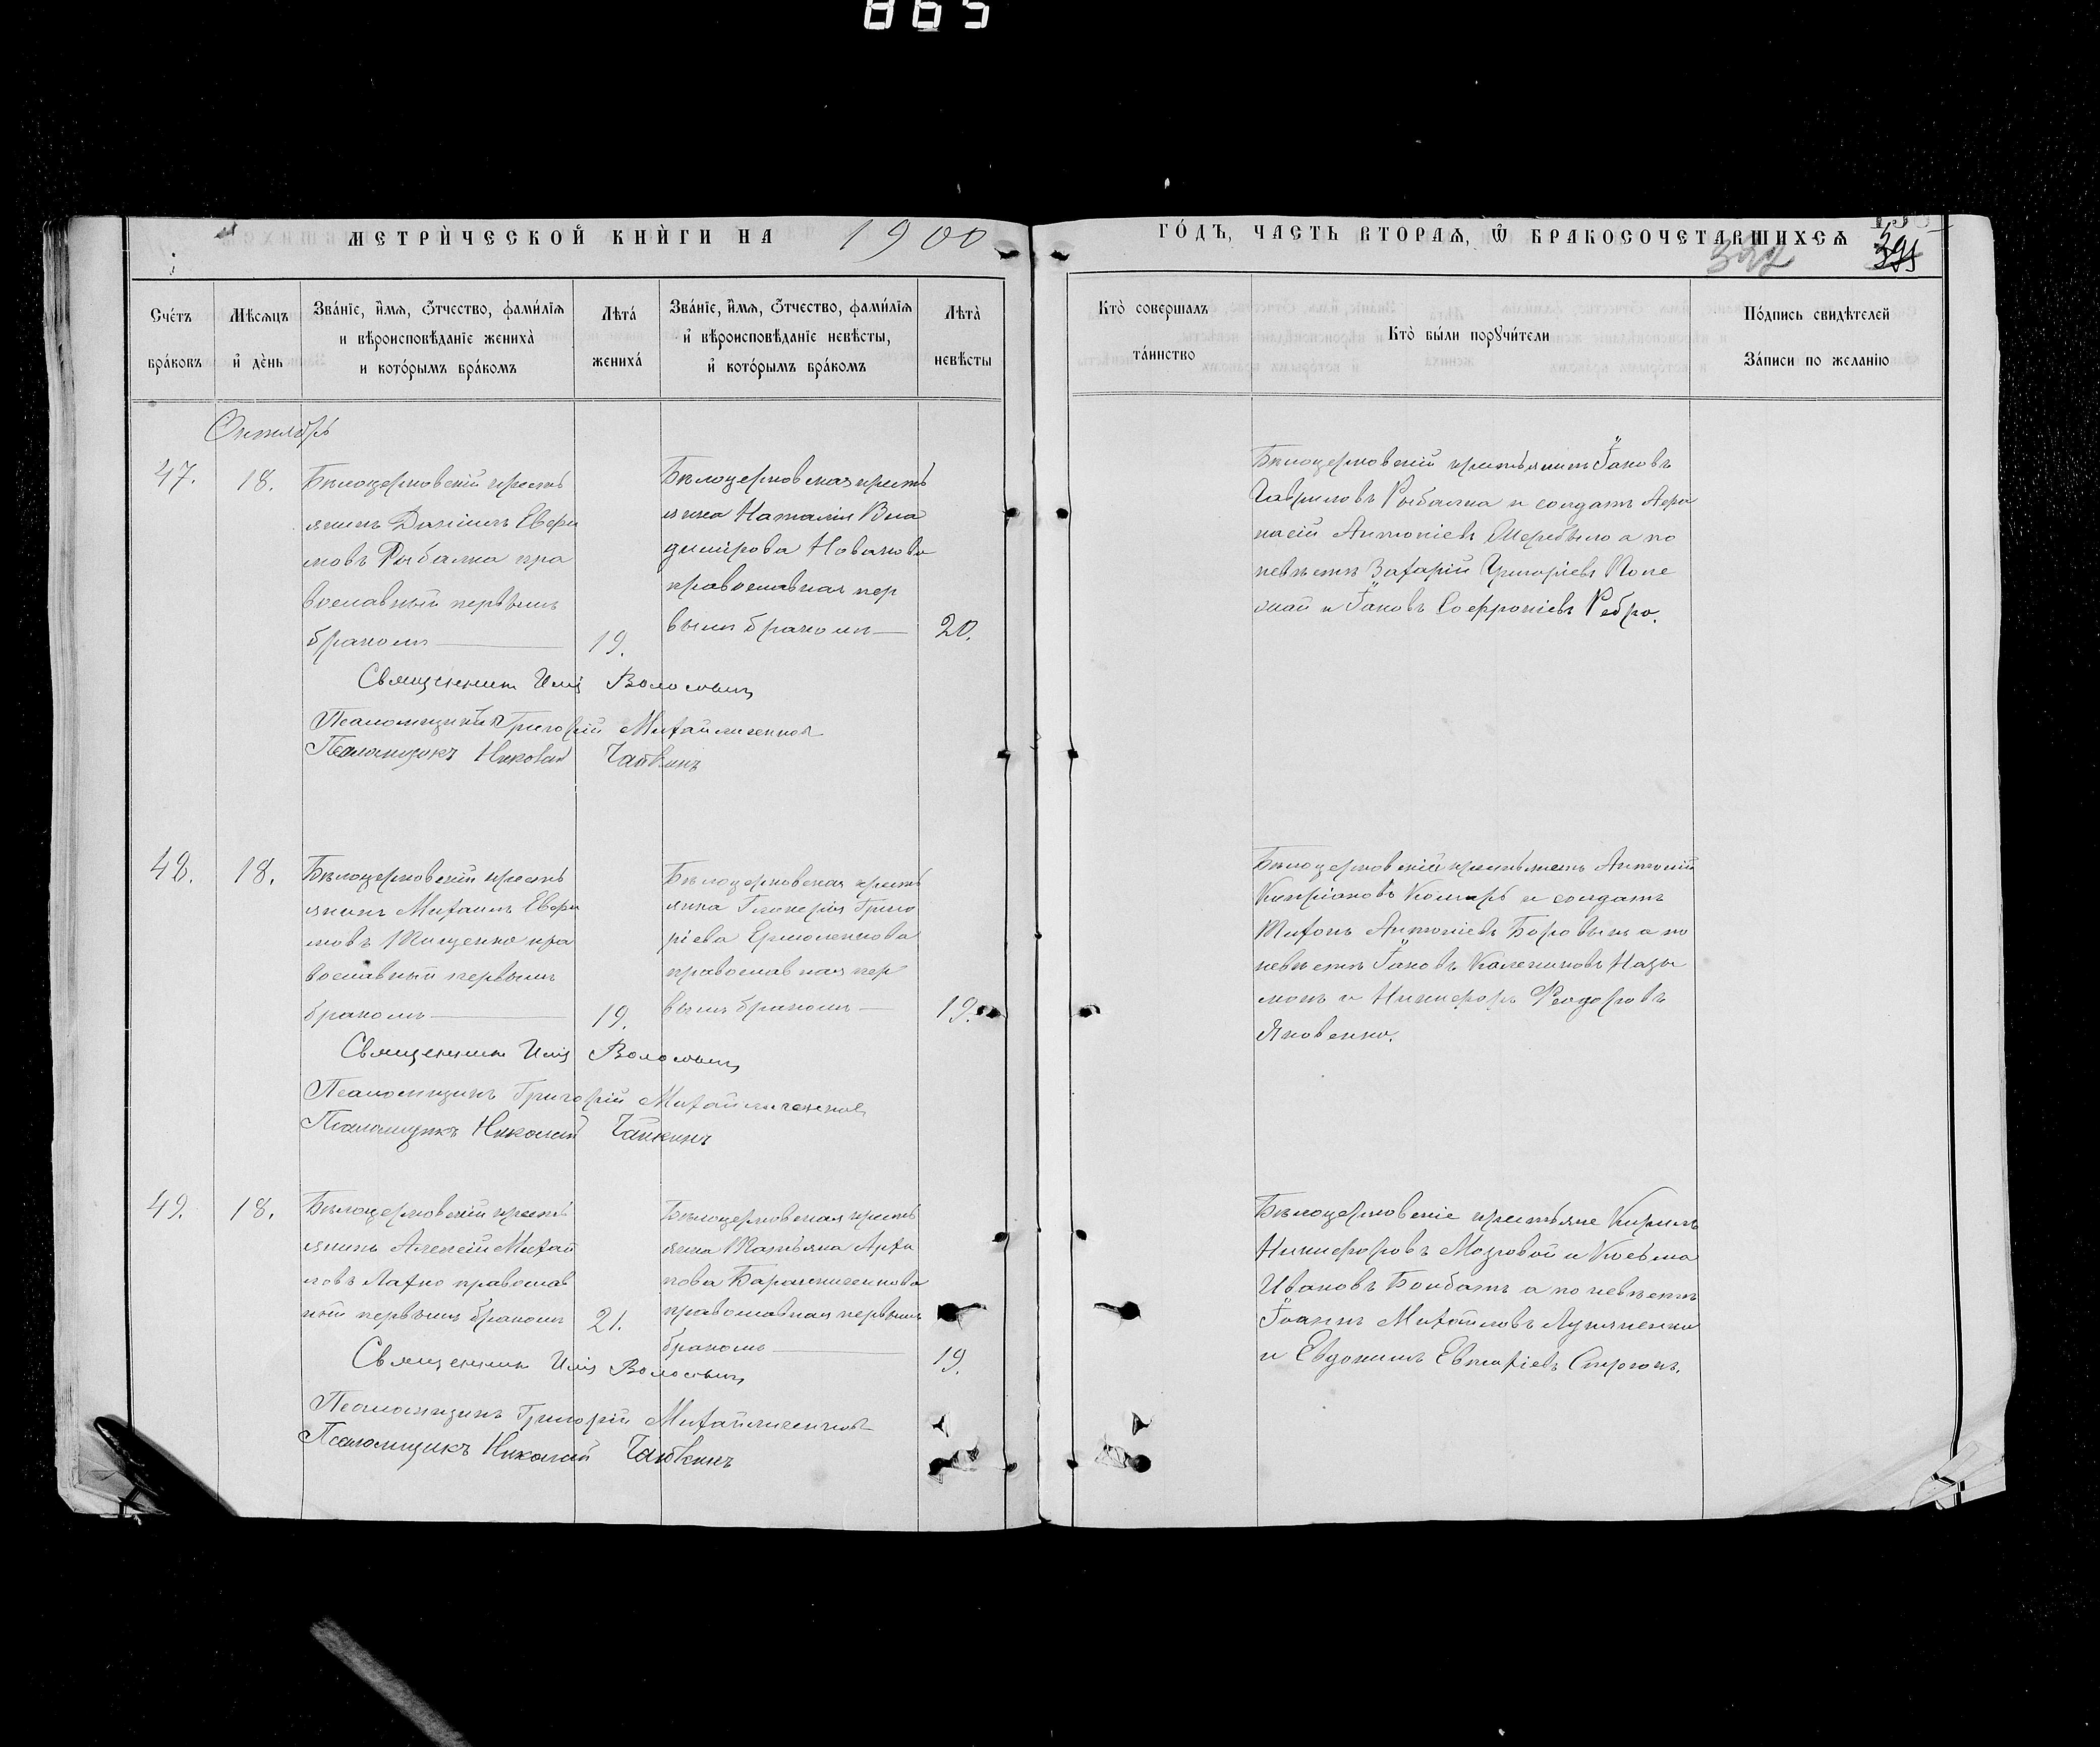 865
МЕТРИ́ЧЕСКОЙ КНИ́ГИ НА 1900
ГО́ДЪ, ЧАСТЬ ВТОРАѦ, Ѡ҆ БРАКОСОЧЕТАВШИХСѦ
392
Сче́тъ бра́ковъ
Мѣ́сѧцъ и҆ де́нь
Зва́нїе, и҆́мѧ, ѻ҆́тчество, фами́лїѧ
и вѣроисповѣ́данїе жениха̀
и кото́рымъ бра́комъ
Лѣта́ жениха́
Зва́нїе, и҆́мѧ, ѻ҆́тчество, фами́лїѧ
и҆ вѣроисповѣ́данїе невѣ́сты,
и҆ кото́рымъ бра́комъ
Лѣта̀ невѣ́сты
Кто̀ соверша́лъ та́инство
Кто̀ бы́ли порꙋчи́тели
По́дпись свидѣ́телей
За́писи по жела́нїю
Октябрь
47.
18.
Бѣлоцерковскій кресть
янинъ Даніилъ Евфи
мовъ Рыбалка пра
вославный первымъ
бракомъ
19.
Бѣлоцерковская кресть
янка Наталія Вла
димірова Новакова
православная пер
вымъ бракомъ
20.
Бѣлоцерковскій крестьянинъ Іаковъ
Гавриловъ Рыбалка и солдатъ Афа
насій Антоніевъ а по
невѣстѣ Захарій Григоріевъ Попе
лнай и Іаковъ Софроніевъ Ребро.
Священникъ Илія
Псаломщикъ Григорій Михайличенко
Псаломщикъ Николай Чайкинъ
48.
18.
Бѣлоцерковскій кресть
янинъ Михаилъ Евфи
мовъ Тищенко пра
вославный первымъ
бракомъ
19.
Бѣлоцерковская кресть
янка Гликерія Григо
ріева Ермоленкова
православная пер
вымъ бракомъ
19.
Бѣлоцерковскій крестьянинъ Антоній
Кипріановъ Комаръ и солдатъ
Тихонъ Антоніевъ а по
невѣстѣ Іаковъ Назы
мокъ и Никифоръ Ѳеодоровъ
Яковенко.
Священникъ Илія
Псаломщикъ Григорій Михайличенко
Псаломщикъ Николай Чайкинъ
49.
18.
Бѣлоцерковскій кресть
янинъ Алексій Михаи
ловъ Лахно православ
ный первымъ бракомъ
21.
Бѣлоцерковская кресть
янка Татьяна Архи
пова
православная первымъ
бракомъ
19.
Бѣлоцерковскіе крестьяне Кирилъ
Никифоровъ Мозговой и Косьма
Ивановъ а по невѣстѣ
Іоаннъ Михайловъ Лукяненко
и Евдокимъ
Священникъ Илія
Псаломщикъ Григорій Михайличенко
Псаломщикъ Николай Чайкинъ